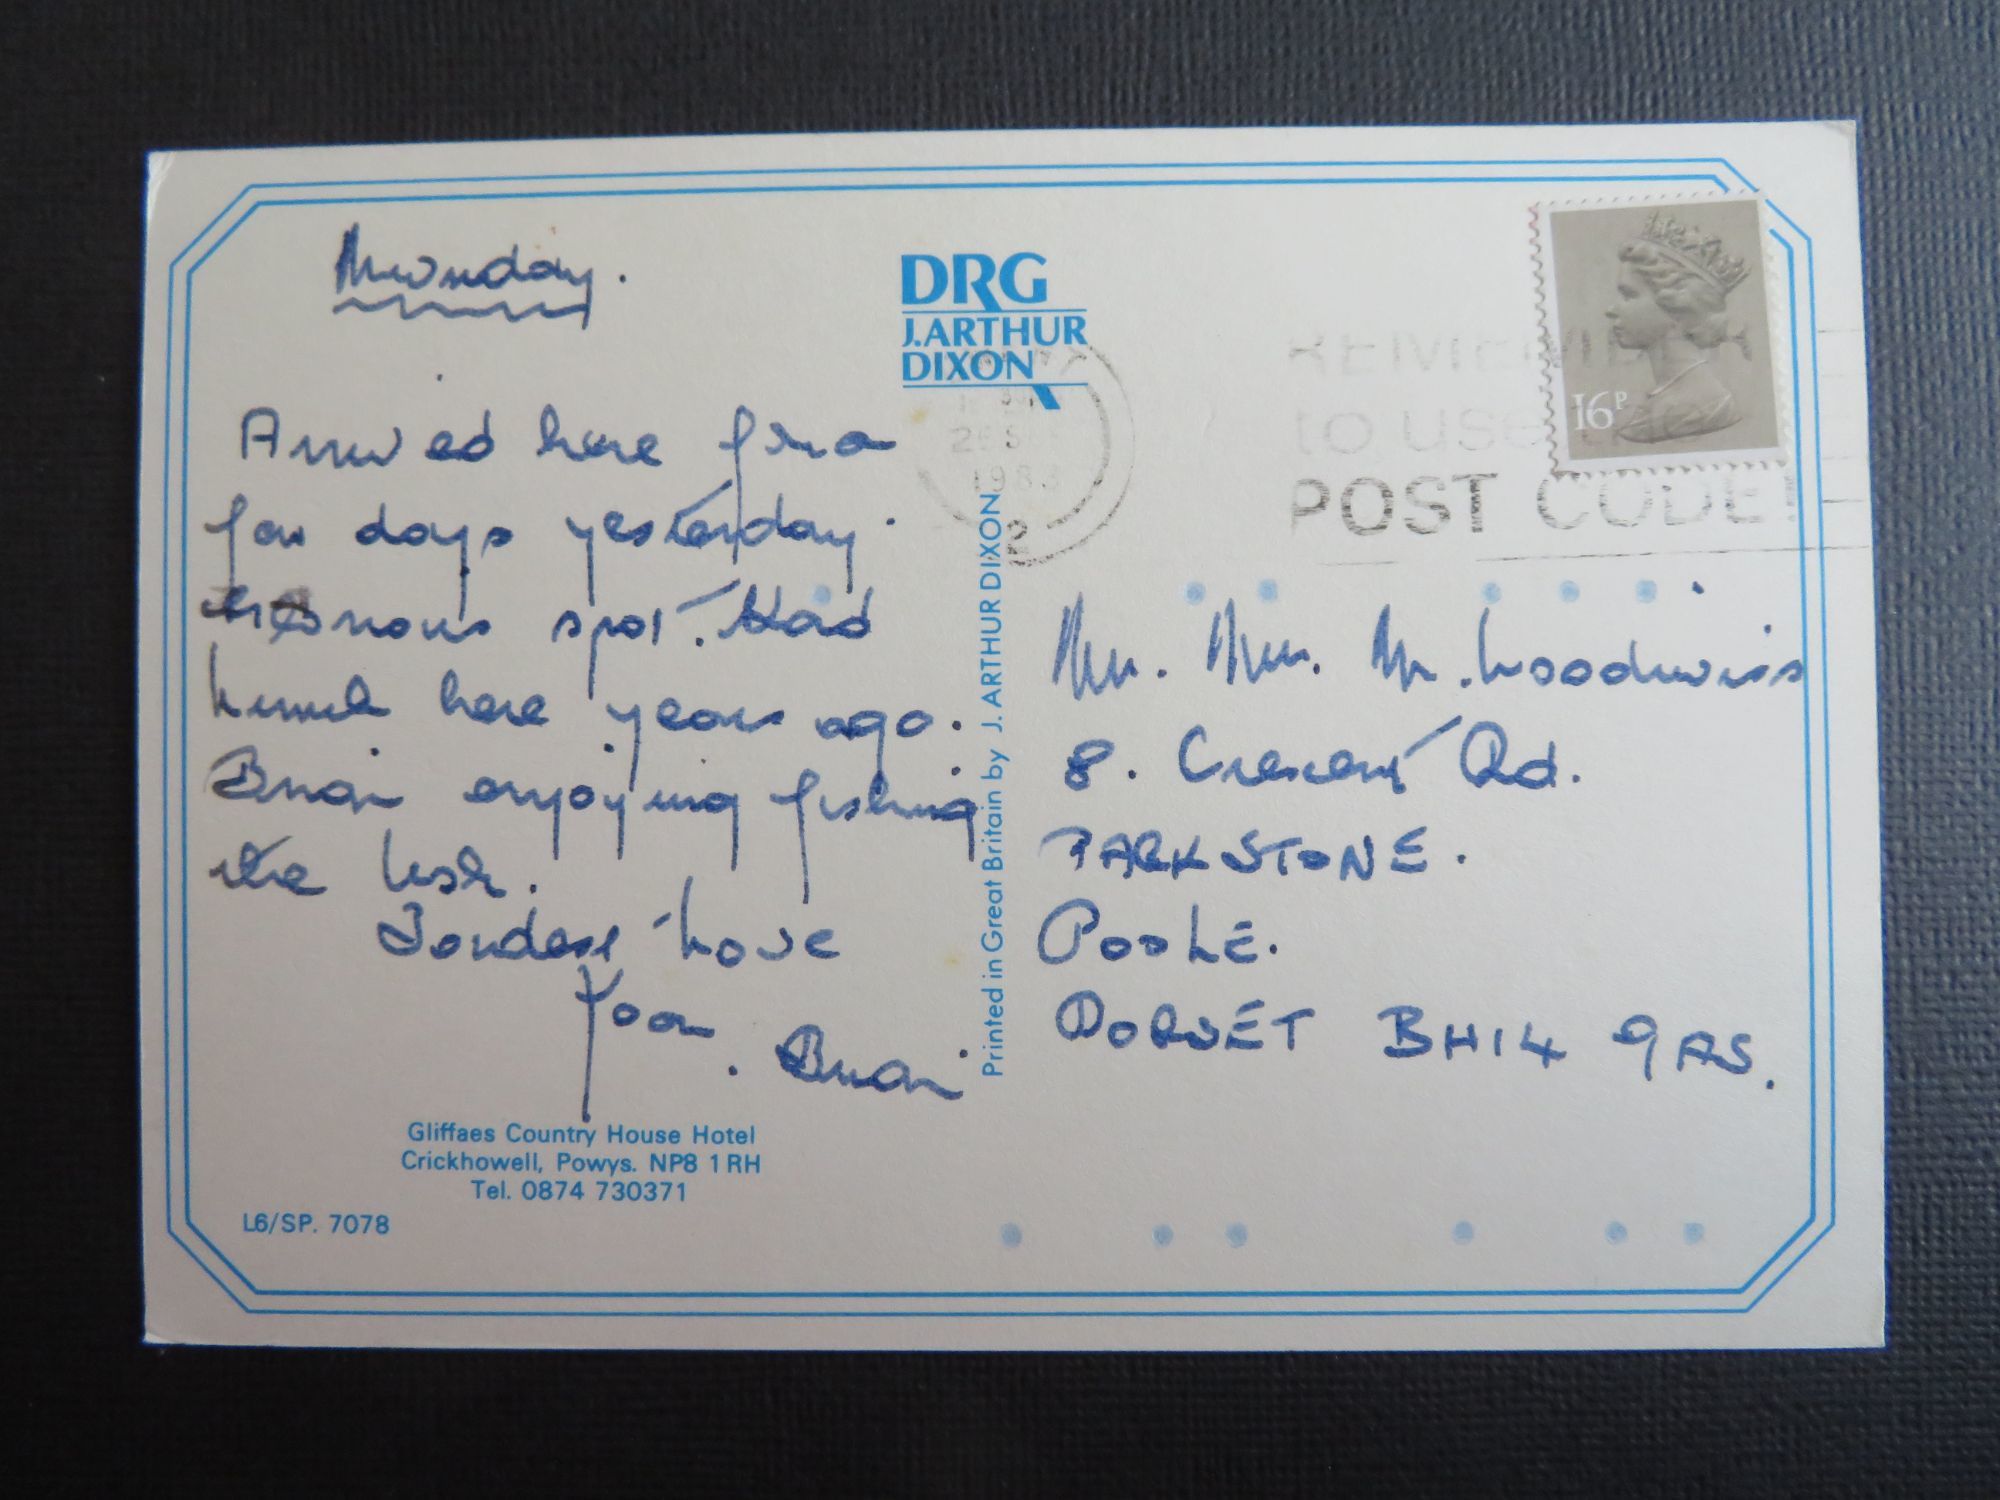 Monday.
Arrived here for a
few days yesterday.
spot. Had
lunch here years ago.
Brian enjoying fishing
the Usk.
Fondest Love
Joan. Brian
Gliffaes Country House Hotel
Crickhowell, Powys. NP8 1RH
Tel. 0874 730371
L6/SP. 7078
DRG
J.ARTHUR
DIXON
Printed in Great Britain by J. ARTHUR DIXON
26 SE
1983
2
REMEM
to use
POST CODE
16P
Mr. Mrs. M. Woodwiss
8. Crescent Rd.
PARKSTONE.
POOLE.
DORSET BH14 9AS.